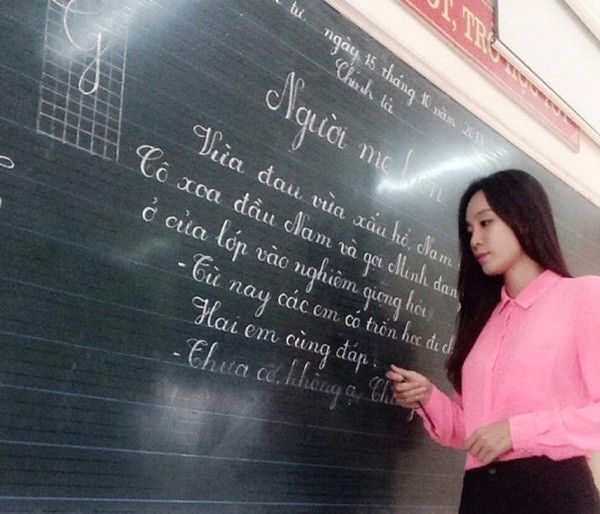 G
tư ngày 15 tháng 10 năm
Chính tả
Người mẹ hiền
Vừa đau vừa xấu hổ, Nam
Cô xoa đầu Nam và gọi Minh đang
ở cửa lớp vào nghiêm giọng hỏi
- Từ nay các em có trốn học đi ch
Hai em cùng đáp.
- Thưa cô, không ạ. Ch
T, TR